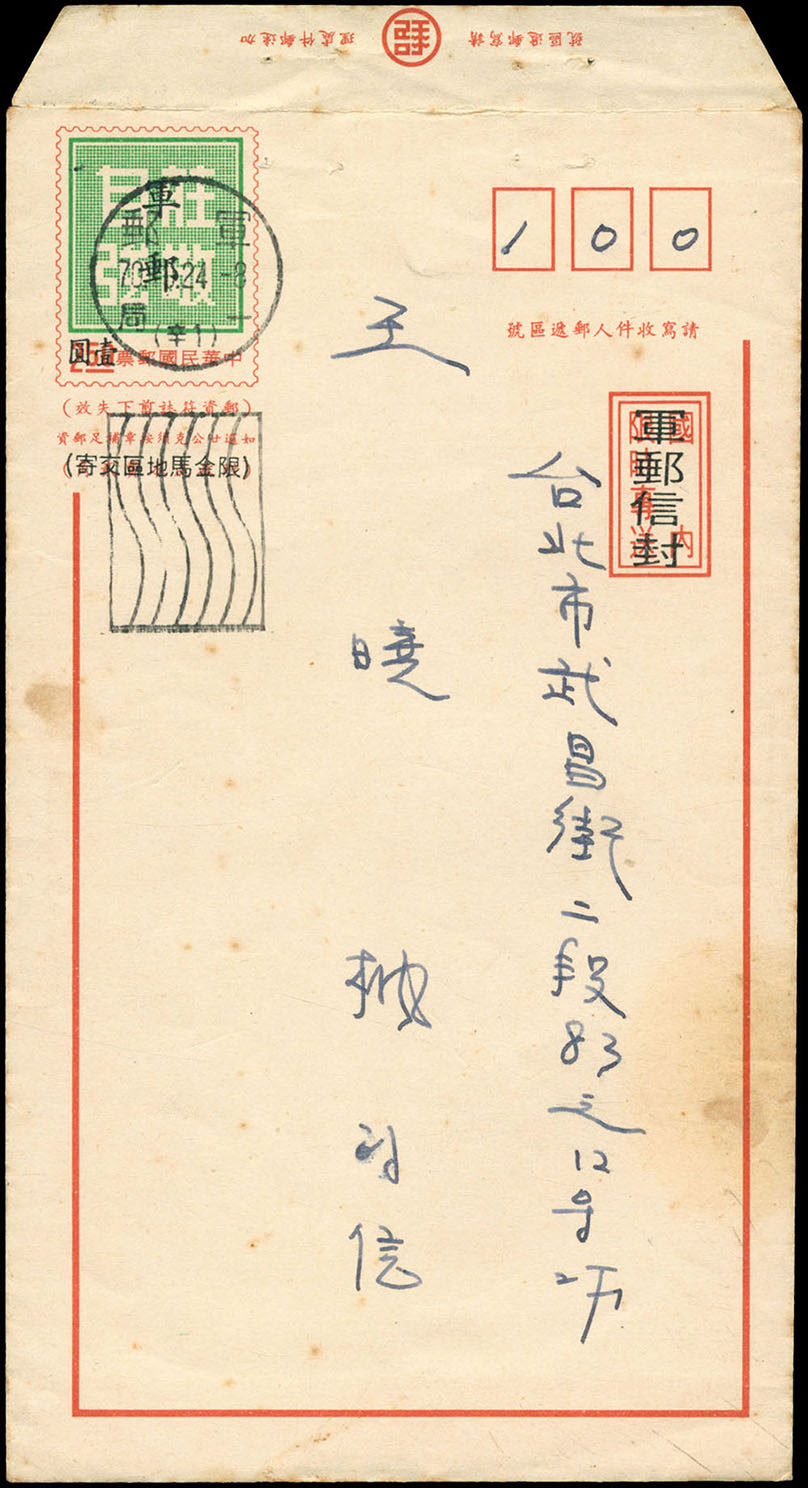 請寫郵遞區號
加速郵件處理
莊敬自強
軍郵
軍郵局
70. .24-8
一
(辛1)
中華民國郵票
壹圓
(郵資符誌剪下失效)
如逾廿公克須按章補足郵資
(限金馬地區交寄)
100
請寫收件人郵遞區號
國內
限時專送
軍郵信封
台北市武昌街二段83之12号2F
王曉
信